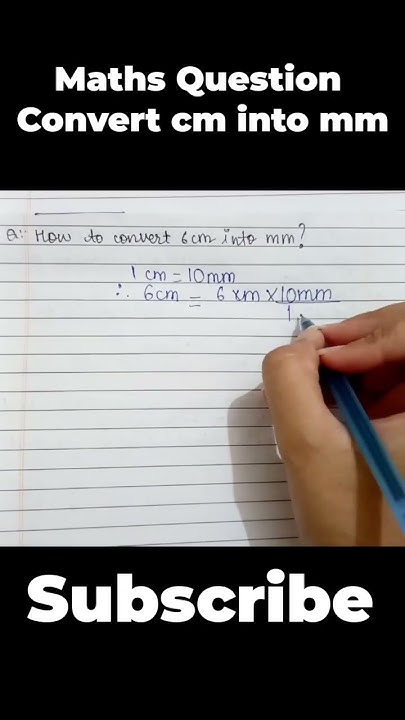 Maths Question
Convert cm into mm
Q:- How to convert 6cm into mm?
1 cm = 10mm
∴ 6cm = 6 xm × 10mm
1
Subscribe